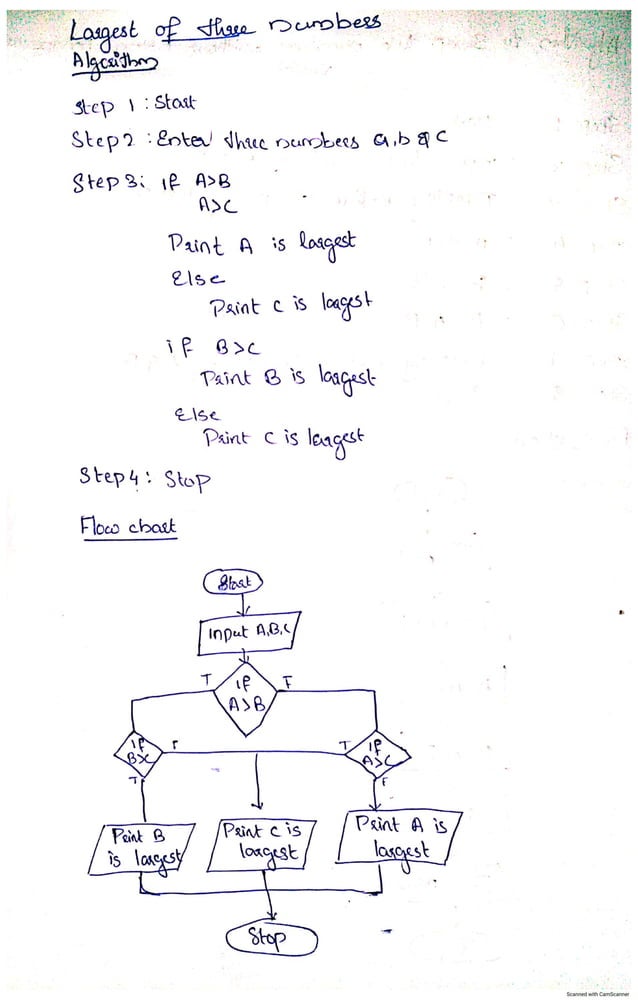 Largest of three numbers
Algorithm
Step 1 : Start
Step 2 : Enter three numbers a, b & c
Step 3: if A>B
A>C
Print A is largest
Else
Print C is largest
if B>C
Print B is largest
Else
Print C is largest
Step 4 : Stop
Flow chart
Start
Input A,B,C
T
if
A>B
F
if
B>C
F
T
if
A>C
T
F
Print B
is largest
Print C is
largest
Print A is
largest
Stop
Scanned with CamScanner